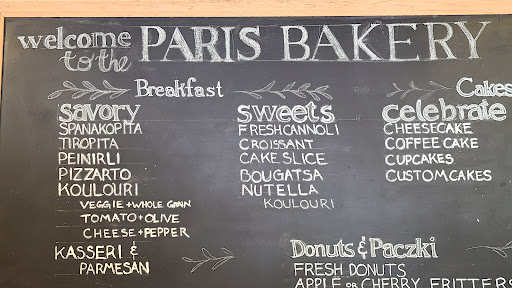 welcome to the PARIS BAKERY
Breakfast
savory
SPANAKOPITA
TIROPITA
PEINIRLI
PIZZARTO
KOULOURI
VEGGIE + WHOLE GRAIN
TOMATO + OLIVE
CHEESE + PEPPER
KASSERI &
PARMESAN
sweets
FRESH CANNOLI
CROISSANT
CAKE SLICE
BOUGATSA
NUTELLA
KOULOURI
Cakes
celebrate
CHEESECAKE
COFFEE CAKE
CUPCAKES
CUSTOM CAKES
Donuts & Paczki
FRESH DONUTS
APPLE OR CHERRY FRITTERS